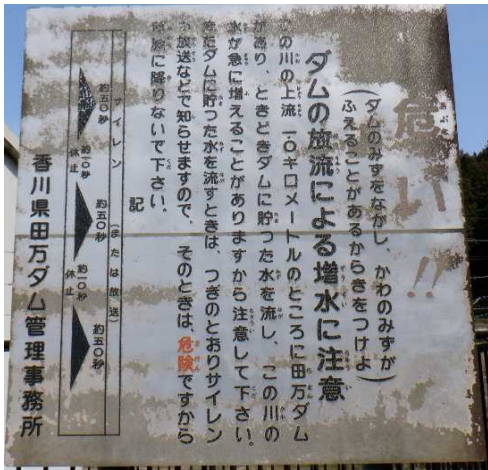 危い!!
(ダムのみずをながし、かわのみずが
ふえることがあるからきをつけよ)
ダムの放流による増水に注意
の川の上流一〇キロメートルのところに田万ダム
があり、ときどきダムに貯った水を流し、この川の
水が急に増えることがありますから注意して下さい。
またダムに貯った水を流すときは、つぎのとおりサイレン
放送などで知らせますので、そのときは、危険ですから
に降りないで下さい。
記
サイレン(または放送)
約五〇秒 約一〇秒 約五〇秒 約一〇秒 約五〇秒
休止 休止
香川県田万ダム管理事務所